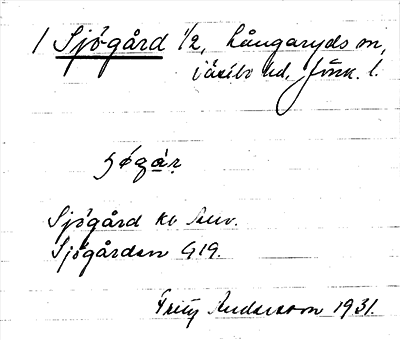 1 Sjögård 1/2, Långaryds sn,
Västbo hd, Jönk. l.
Sjögård
Sjögården G19.
Fritz Andersson 1931.